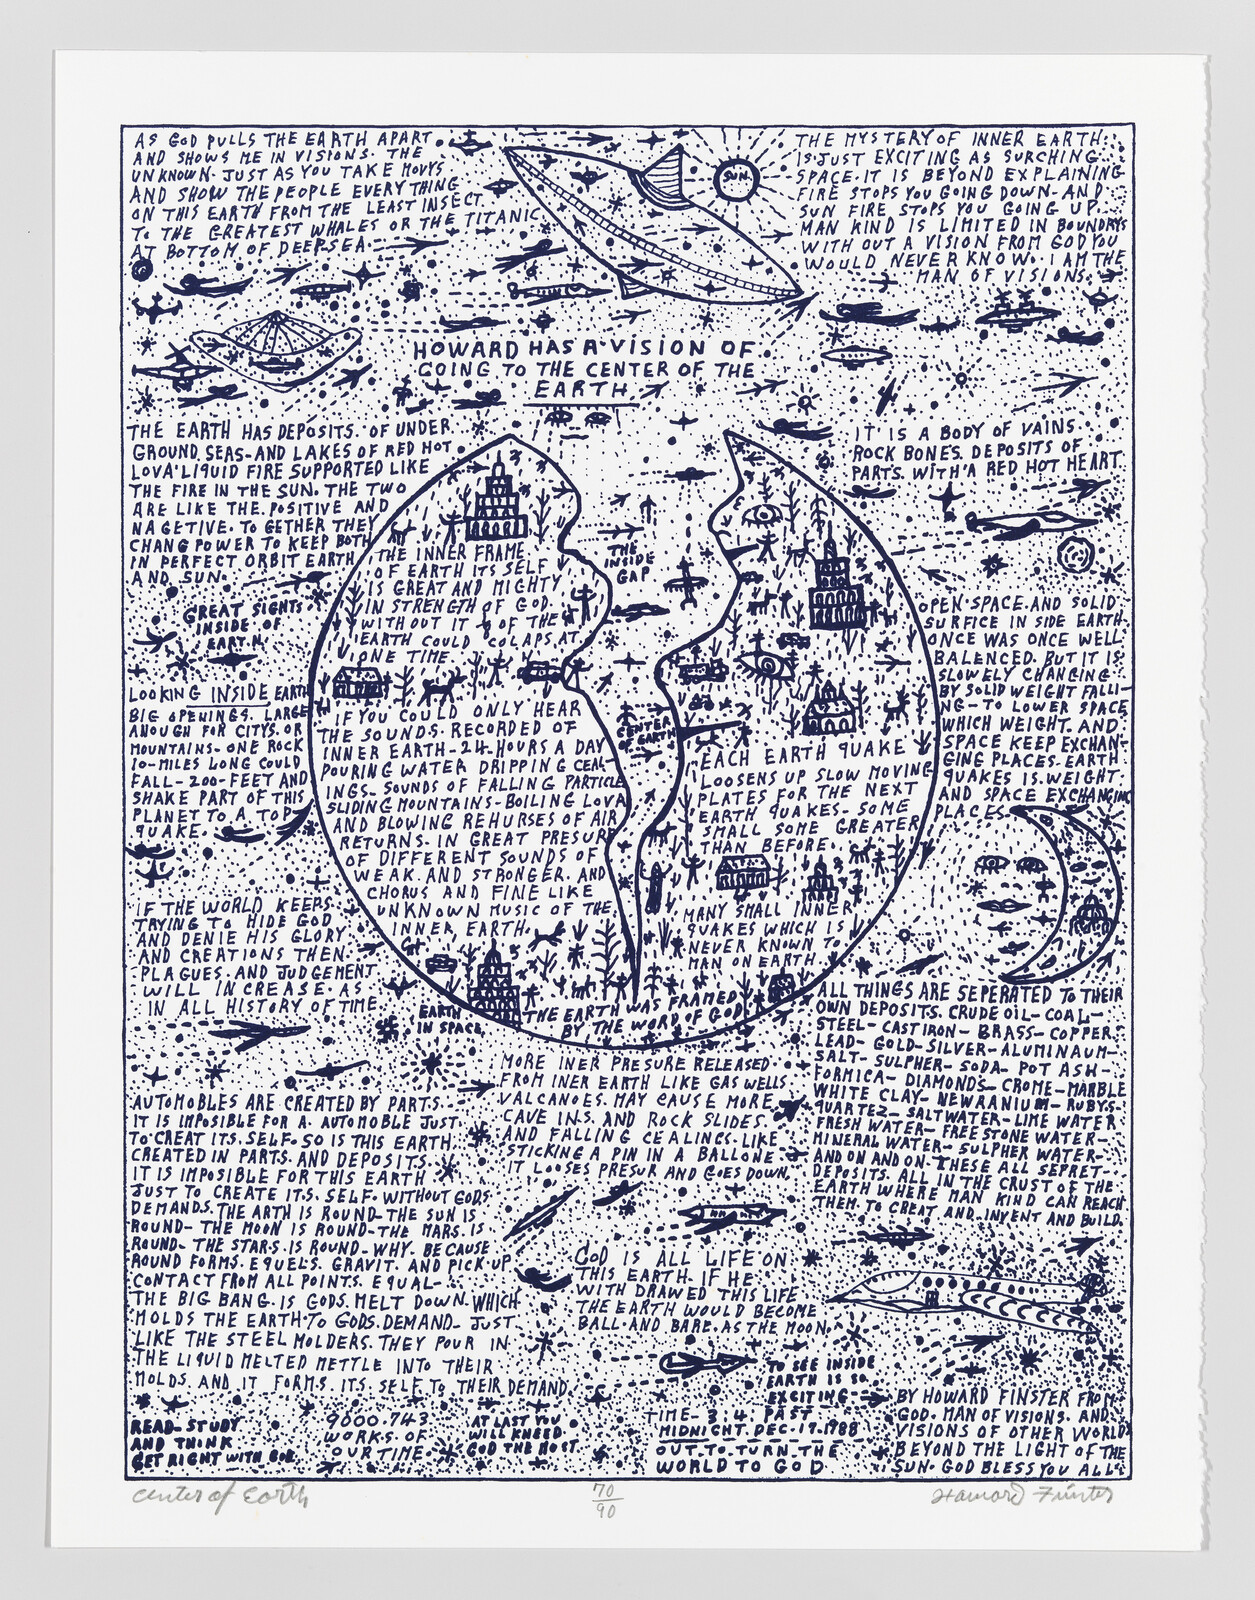 AS GOD PULLS THE EARTH APART
AND SHOWS ME IN VISIONS. THE
UNKNOWN. JUST AS YOU TAKE MOVYS
AND SHOW THE PEOPLE EVERY THING
ON THIS EARTH FROM THE LEAST INSECT
TO THE GREATEST WHALES OR THE TITANIC
AT BOTTOM OF DEEPSEA.
SUN.
THE MYSTERY OF INNER EARTH.
IS JUST EXCITING AS SURCHING
SPACE. IT IS BEYOND EXPLAINING
FIRE STOPS YOU GOING DOWN. AND
SUN FIRE STOPS YOU GOING UP.
MAN KIND IS LIMITED IN BOUNDRYS
WITH OUT A VISION FROM GOD YOU
WOULD NEVER KNOW. I AM THE
MAN OF VISIONS.
HOWARD HAS A VISION OF
GOING TO THE CENTER OF THE
EARTH
THE EARTH HAS DEPOSITS. OF UNDER
GROUND. SEAS- AND LAKES OF RED HOT
LOVA LIQUID FIRE SUPPORTED LIKE
THE FIRE IN THE SUN. THE TWO
ARE LIKE THE. POSITIVE AND
NAGETIVE. TO GETHER THEY
CHANG POWER TO KEEP BOTH
IN PERFECT ORBIT EARTH
AND SUN.
GREAT SIGHTS
INSIDE OF
EARTH.
LOOKING INSIDE EARTH
BIG OPENINGS. LARGE
ANOUGH FOR CITYS. OR
MOUNTAINS- ONE ROCK
10-MILES LONG COULD
FALL-200-FEET AND
SHAKE PART OF THIS
PLANET TO A TOP
QUAKE.
IF THE WORLD KEEPS
TRYING TO HIDE GOD
AND DENIE HIS GLORY
AND CREATIONS THEN
PLAGUES. AND JUDGEMENT
WILL INCREASE. AS
IN ALL HISTORY OF TIME.
IT IS A BODY OF VAINS
ROCK BONES. DEPOSITS OF
PARTS. WITH A RED HOT HEART.
THE INNER FRAME
OF EARTH ITS SELF
IS GREAT AND MIGHTY
IN STRENGTH OF GOD.
WITHOUT IT OF THE
EARTH COULD COLAPS AT
ONE TIME.
IF YOU COULD ONLY HEAR
THE SOUNDS. RECORDED OF
INNER EARTH-24-HOURS A DAY
POURING WATER DRIPPING CEAL-
INGS. SOUNDS OF FALLING PARTICLE
SLIDING MOUNTAINS-BOILING LOVA
AND BLOWING REHURSES OF AIR
RETURNS. IN GREAT PRESURE
OF DIFFERENT SOUNDS OF
WEAK. AND STRONGER. AND
CHORUS AND FINE LIKE
UNKNOWN MUSIC OF THE
INNER, EARTH.
THE
INSIDE
GAP
CENTER
OF EARTH
EACH EARTH QUAKE
LOOSENS UP SLOW MOVING
PLATES FOR THE NEXT
EARTH QUAKES. SOME
SMALL SOME GREATER
THAN BEFORE.
MANY SMALL INNER
QUAKES WHICH IS
NEVER KNOWN TO
MAN ON EARTH.
THE EARTH WAS FRAMED
BY THE WORD OF GOD
EARTH
IN SPACE.
OPEN SPACE. AND SOLID
SURFICE IN SIDE EARTH
ONCE WAS ONCE WELL
BALENCED. BUT IT IS
SLOWELY CHANGING
BY SOLID WEIGHT FALLI-
NG-TO LOWER SPACE
WHICH WEIGHT. AND
SPACE KEEP EXCHAN-
GING PLACES. EARTH
QUAKES IS. WEIGHT.
AND SPACE EXCHANGING
PLACES.
ALL THINGS ARE SEPERATED TO THEIR
OWN DEPOSITS. CRUDE OIL- COAL-
STEEL- CAST IRON- BRASS- COPPER
LEAD- GOLD-SILVER-ALUMINAUM-
SALT- SULPHER- SODA- POT ASH-
FORMICA- DIAMONDS- CROME-MARBLE
WHITE CLAY- NEWRANIUM- RUBYS-
QUARTEZ- SALTWATER-LIME WATER
FRESH WATER- FREESTONE WATER-
MINERAL WATER- SULPHER WATER-
AND ON AND ON-THESE ALL SEPRET-
DEPOSITS. ALL IN THE CRUST OF THE
EARTH WHERE MAN KIND CAN REACH
THEM. TO CREAT AND INVENT AND BUILD.
MORE INER PRESURE RELEASED
FROM INER EARTH LIKE GAS WELLS
VALCANOES. MAY CAUSE MORE
CAVE INS. AND ROCK SLIDES.
AND FALLING CEALINGS. LIKE
STICKING A PIN IN A BALLONE
IT LOOSES PRESUR AND GOES DOWN.
AUTOMOBLES ARE CREATED BY PARTS.
IT IS IMPOSIBLE FOR A. AUTOMOBLE JUST
TO CREAT ITS. SELF. SO IS THIS EARTH.
CREATED IN PARTS. AND DEPOSITS.
IT IS IMPOSIBLE FOR THIS EARTH
JUST TO CREATE ITS. SELF. WITHOUT GODS
DEMANDS. THE ARTH IS ROUND-THE SUN IS
ROUND- THE MOON IS ROUND-THE MARS. IS
ROUND- THE STARS. IS ROUND-WHY. BECAUSE
ROUND FORMS. EQUELS. GRAVIT. AND PICK UP
CONTACT FROM ALL POINTS. EQUAL-
THE BIG BANG. IS GODS. MELT DOWN. WHICH
MOLDS THE EARTH TO GODS. DEMAND- JUST
LIKE THE STEEL MOLDERS. THEY POUR IN
THE LIQUID MELTED METTLE INTO THEIR
MOLDS. AND IT FORMS. ITS. SELF TO THEIR DEMAND.
GOD IS ALL LIFE ON
THIS EARTH. IF HE
WITH DRAWED THIS LIFE
THE EARTH WOULD BECOME
BALL. AND BARE. AS THE MOON.
TO SEE INSIDE
EARTH IS SO
EXCITING
READ-STUDY
AND THINK
GET RIGHT WITH GOD.
9000.743
WORKS. OF
OUR TIME.
AT LAST YOU
WILL KNEED
GOD THE MOST.
TIME-3:4: PAST
MIDNIGHT. DEC.17.1988
OUT TO TURN THE
WORLD TO GOD
BY HOWARD FINSTER FROM
GOD. MAN OF VISIONS. AND
VISIONS OF OTHER WORLDS
BEYOND THE LIGHT OF THE
SUN. GOD BLESS YOU ALL
Center of Earth
70
90
Howard Finster